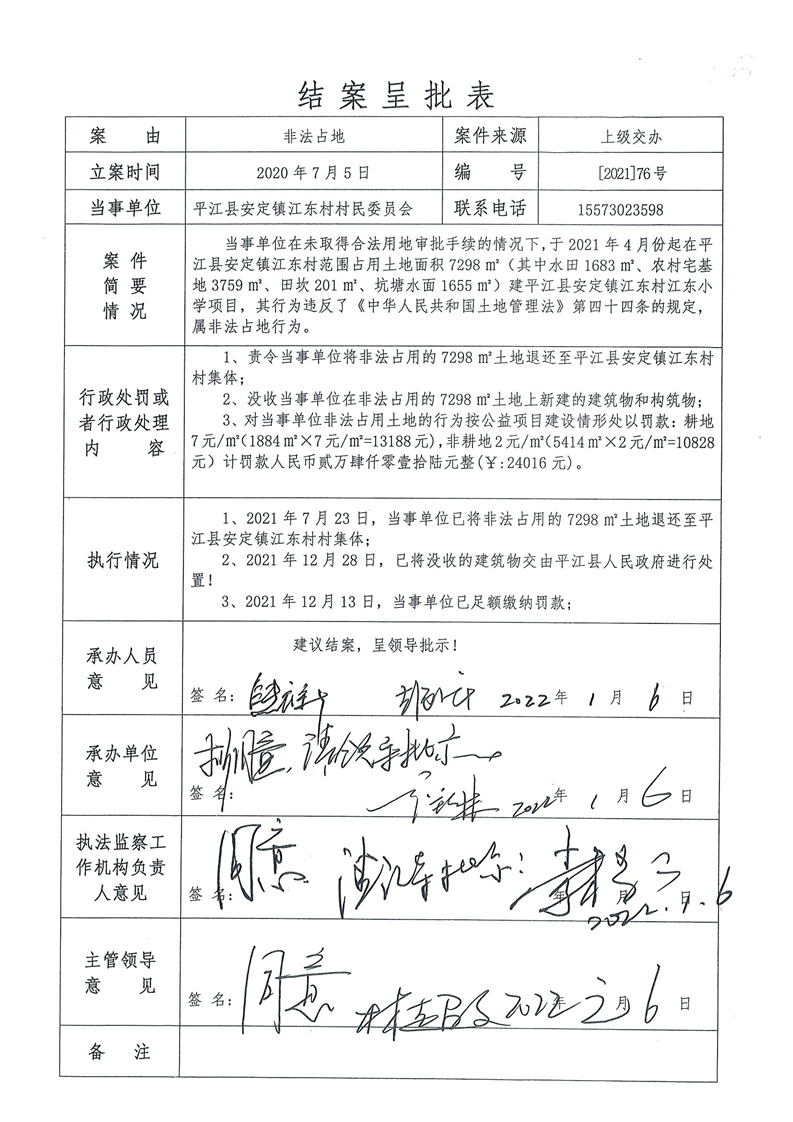 结案呈批表
案 由 非法占地 案件来源 上级交办
立案时间 2020年7月5日 编 号 [2021]76号
当事单位 平江县安定镇江东村村民委员会 联系电话 15573023598
案件
简要
情况
当事单位在未取得合法用地审批手续的情况下,于2021年4月份起在平
江县安定镇江东村范围占用土地面积7298㎡（其中水田1683㎡、农村宅基
地3759㎡、田坎201㎡、坑塘水面1655㎡）建平江县安定镇江东村江东小
学项目，其行为违反了《中华人民共和国土地管理法》第四十四条的规定，
属非法占地行为。
行政处罚或
者行政处理
内 容
1、责令当事单位将非法占用的7298㎡土地退还至平江县安定镇江东村
村集体；
2、没收当事单位在非法占用的7298㎡土地上新建的建筑物和构筑物；
3、对当事单位非法占用土地的行为按公益项目建设情形处以罚款：耕地
7元/㎡(1884㎡×7元/㎡=13188元),非耕地2元/㎡(5414㎡×2元/㎡=10828
元）计罚款人民币贰万肆仟零壹拾陆元整(￥:24016元)。
执行情况
1、2021年7月23日，当事单位已将非法占用的7298㎡土地退还至平
江县安定镇江东村村集体；
2、2021年12月28日，已将没收的建筑物交由平江县人民政府进行处
置！
3、2021年12月13日，当事单位已足额缴纳罚款；
承办人员
意 见
建议结案，呈领导批示！
签名： 2022年1月6日
承办单位
意 见
签名： 2022年1月6日
执法监察工
作机构负责
人意见
同意
签名： 年 月 日
2022.1.6
主管领导
意 见
同意
签名： 2022年 月6日
备 注